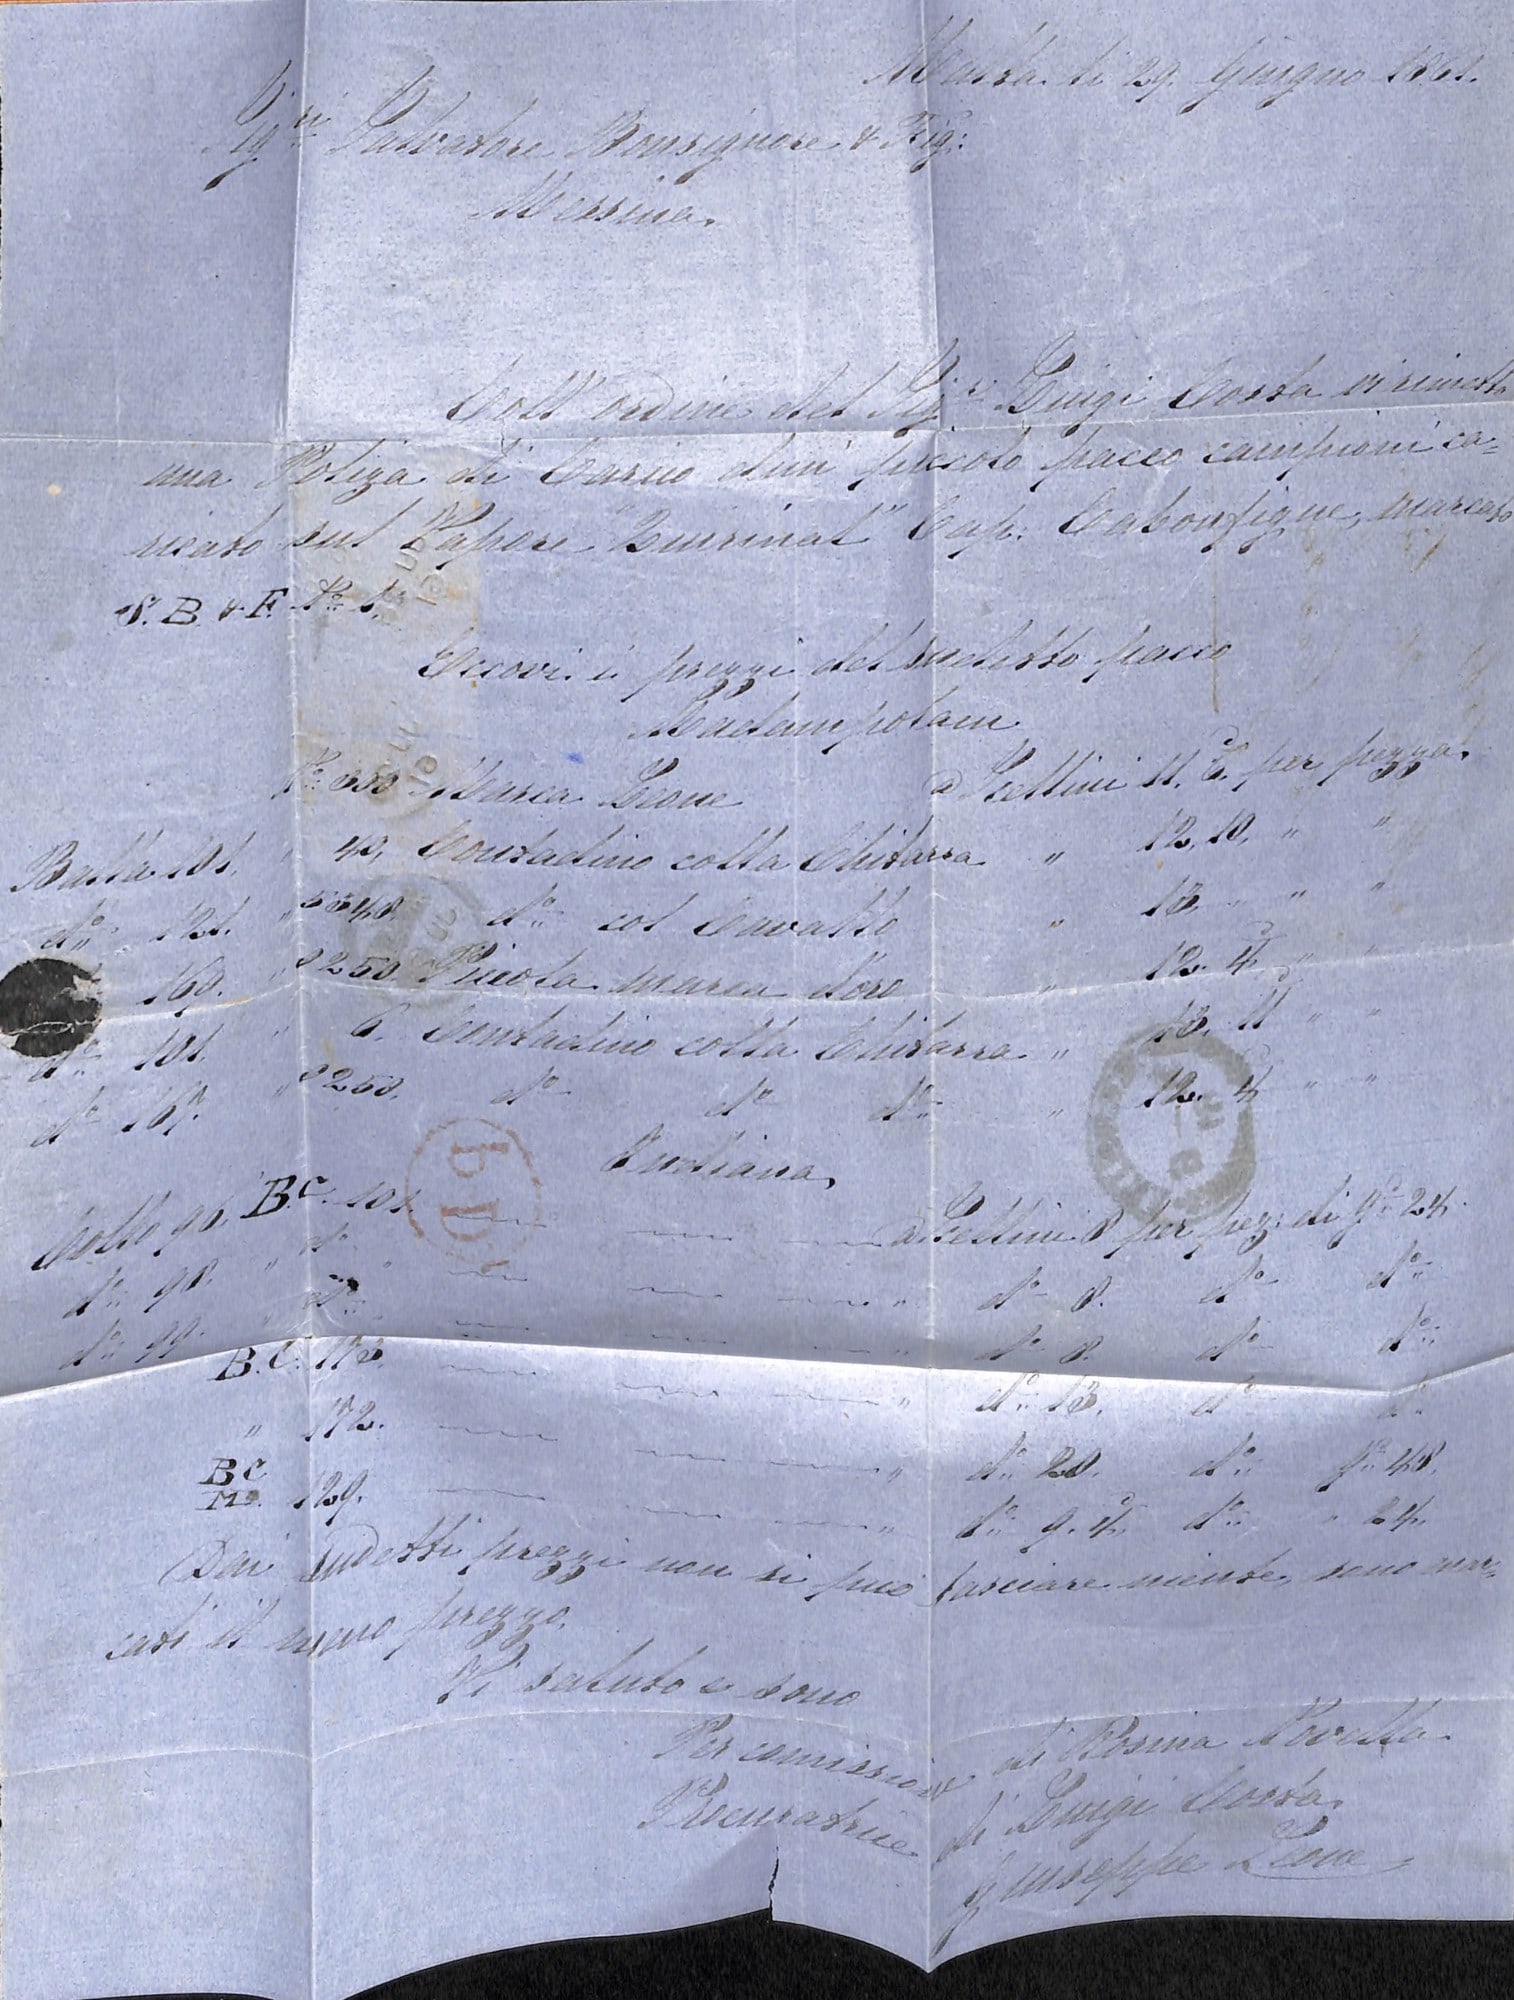 Malta li 29. Giugno 1861.
Sig.ri Salvatore Bonsignore & Fig:
Messina.
Coll' ordine del Sig.r Luigi Costa vi rimetto
una Poliza di Carico d'un piccolo pacco campioni ca=
ricato sul Vapore "Quirinal" Cap: Cabonfigue, marcato
S. B. & F. No. 1.
Eccovi i prezzi del sudetto pacco
Madampolam
No. 350 Marca Leone a Scellini 11. 6.d per pezza.
Balla 101. " 40. Contadino colla Chitarra " 12. 10. " "
do. 121. " 5548. do. col Cavallo " 13. " " "
160. " 8250. Piccola marca d'oro " 12. 4.d " "
do. 101. " 6. Contadino colla Chitarra " 13. 11 " "
do. 167. " 8250. do. do. do. " 12. 4.d " "
Indiana.
Collo 96. B.C. 101. a Scellini 8 per pez: di yd. 24.
do. 98. " do. " " do. 8. do. do.
do. 99. " do. " do. 8. do. do.
B.C. 173. " do. 13. do. do.
" 172. " do. 20. do. yd. 48.
BC
Mo. 129. " do. 9. 4.d do. " 24.
Dai sudetti prezzi non si può lasciare niente, sono mar=
cati il mero prezzo.
Vi saluto e sono
Per comissione di Rosina Novella
Procuratrice di Luigi Costa.
Giuseppe Leone
PD